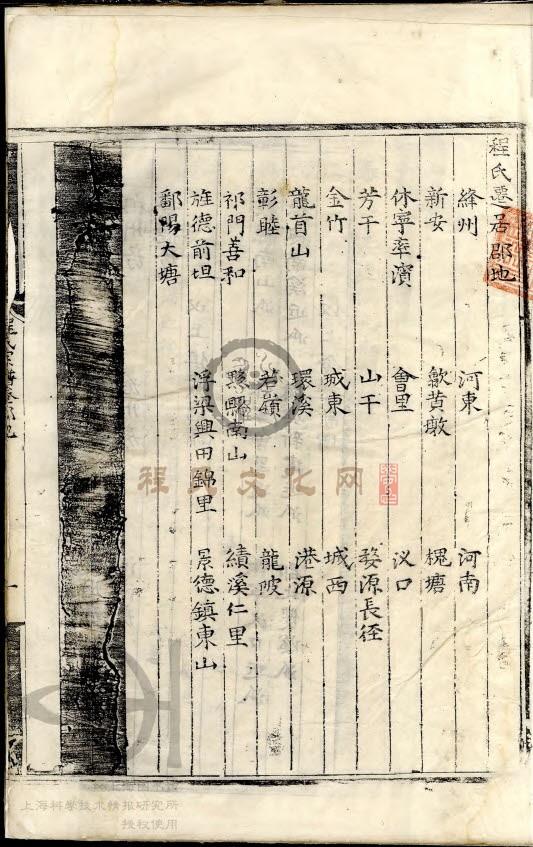 程氏遷居郡地
絳州 河東 河南
新安 歙黄墩 槐塘
休寧率濱 會里 汊口
芳干 山干 婺源長徑
金竹 城東 城西
龍首山 環溪 港源
彰睦 若嶺 龍陂
祁門善和 黟縣南山 績溪仁里
旌德前坦 浮梁興田錦里 景德鎮東山
鄱陽大塘
程氏文化网
上海科學技术情报研究所
授权使用